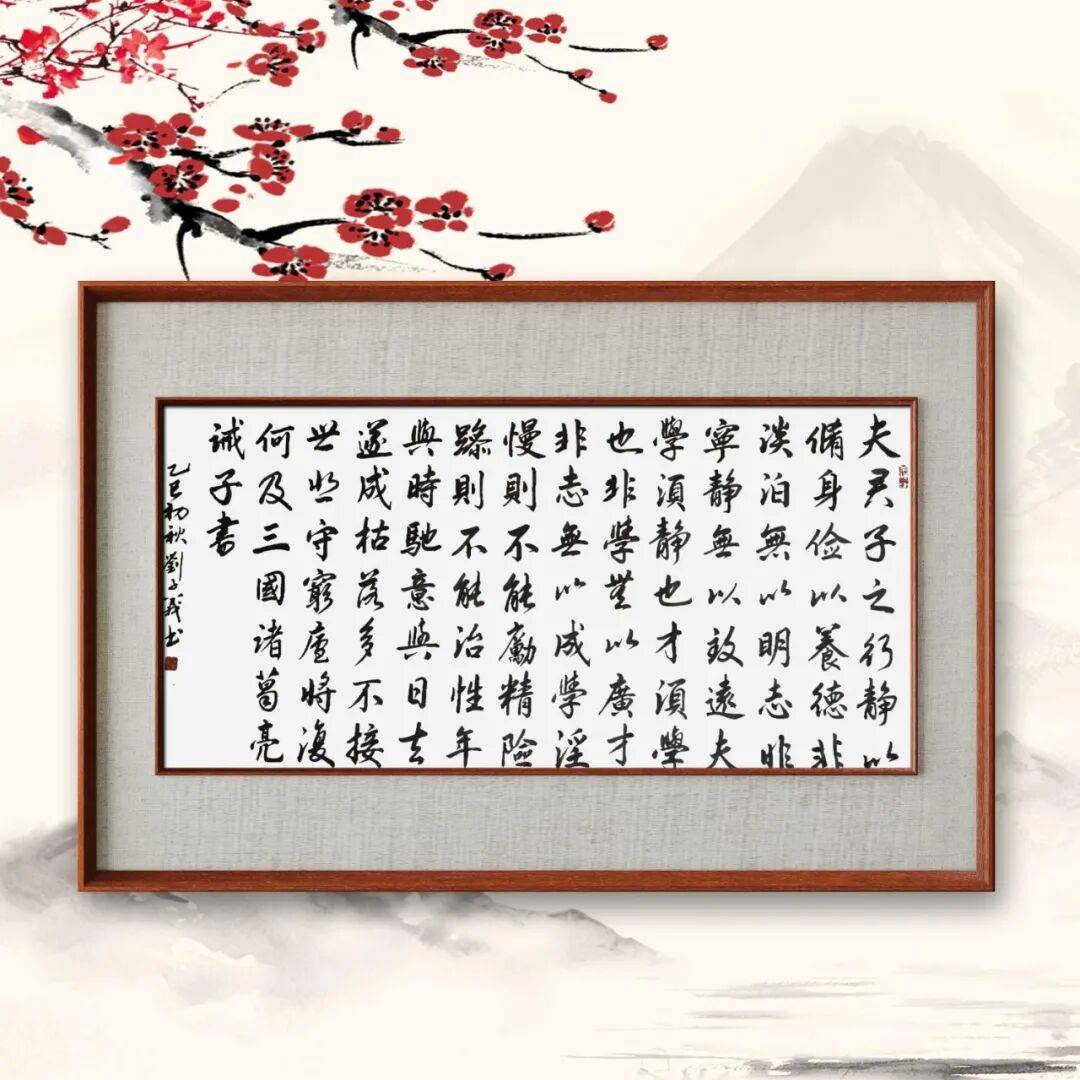 夫君子之行静以
脩身俭以養德非
淡泊無以明志非
寧静無以致遠夫
學須静也才須學
也非學無以廣才
非志無以成學淫
慢則不能勵精險
躁則不能治性年
與時馳意與日去
遂成枯落多不接
世悲守窮廬將復
何及三國諸葛亮
誡子書
乙巳初秋劉子義书